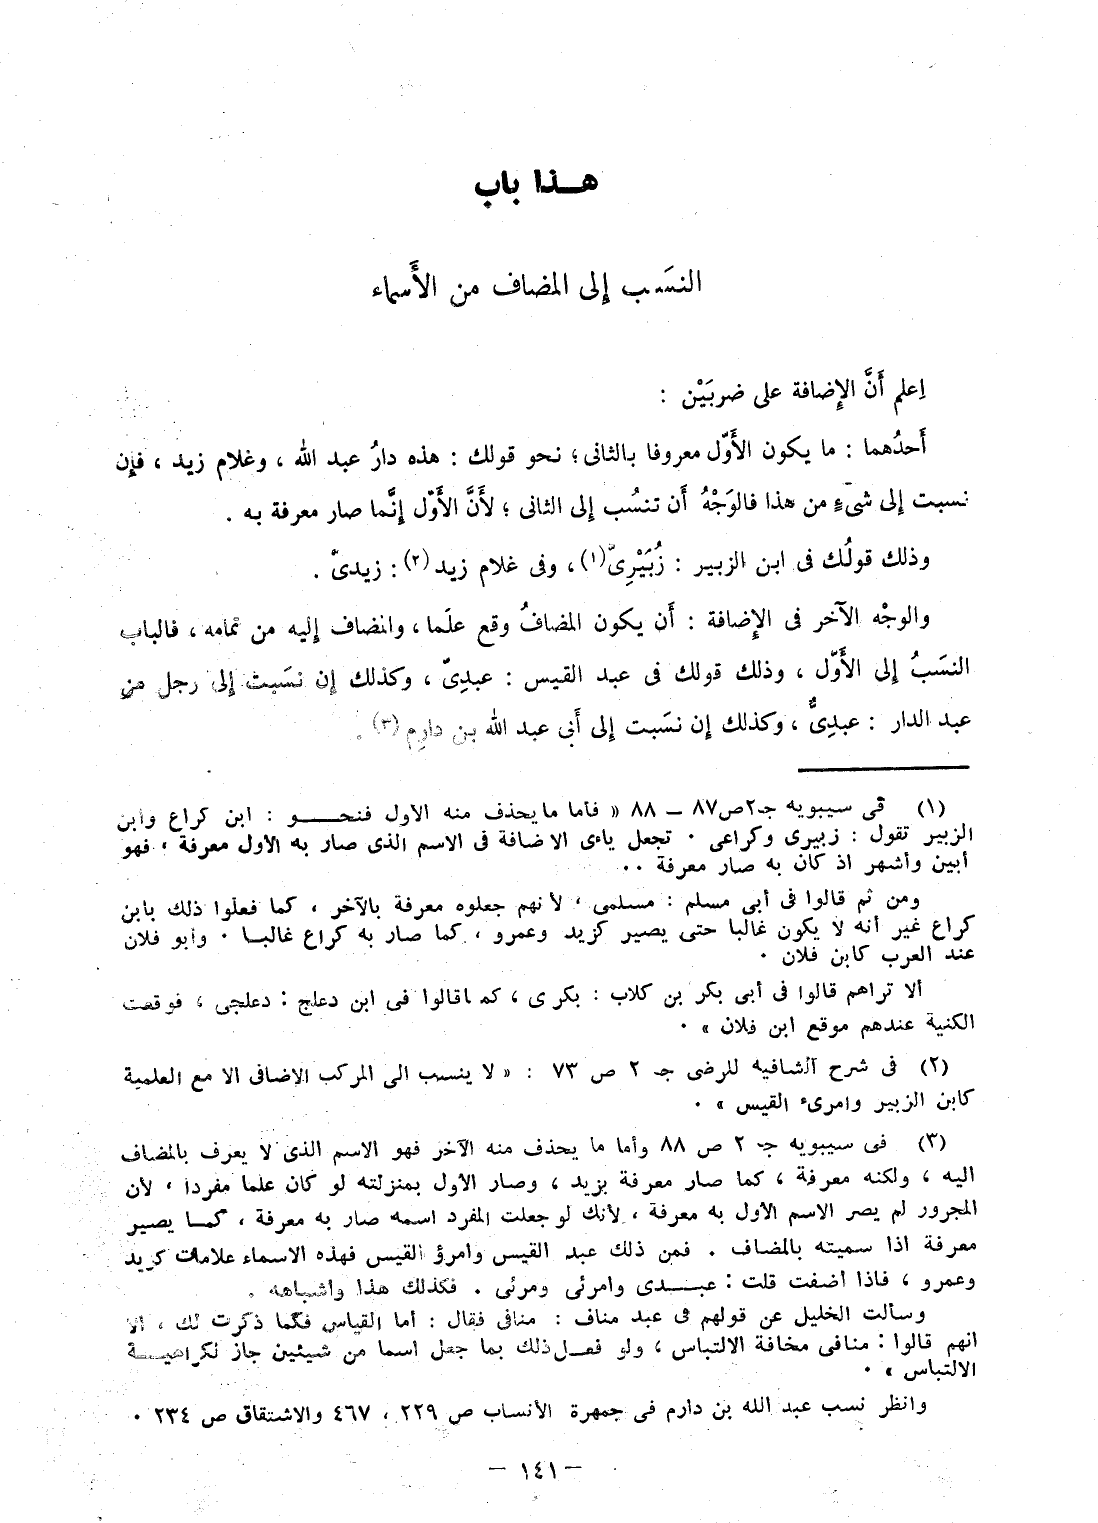 هـــذا باب
النسَب إلى المضاف من الأَسماء
اِعلم أَنَّ الإِضافة على ضربَيْن :
أَحدُهما : ما يكون الأَوّل معروفا بالثانى ؛ نحو قولك : هذه دارُ عبد الله ، وغلام زيد ، فإِن
نسبت إِلى شىْءٍ من هذا فالوَجْهُ أَن تنسُب إِلى الثانى ؛ لأَنَّ الأَوّل إِنَّما صار معرفة به .
وذلك قولُك فى ابن الزبير : زُبَيْرِىّ(١) ، وفى غلام زيد(٢) : زيدىّ .
والوجْه الآخر فى الإِضافة : أَن يكون المضافُ وقع علَما ، والمضاف إِليه من تمامه ، فالباب
النسَبُ إِلى الأَوّل ، وذلك قولك فى عبد القيس : عبدِىّ ، وكذلك إِن نسَبت إِلى رجل من
عبد الدار : عبدِىٌّ ، وكذلك إِن نسَبت إِلى أَبى عبد الله بن دارِم(٣) .
(١) فى سيبويه جـ٢ص٨٧ – ٨٨ « فأما ما يحذف منه الأول فنحـــو : ابن كراع وابن
الزبير تقول : زبيرى وكراعى ٠ تجعل ياءى الاضافة فى الاسم الذى صار به الأول معرفة ، فهو
أبين وأشهر اذ كان به صار معرفة ٠٠
ومن ثم قالوا فى أبى مسلم : مسلمى ، لأنهم جعلوه معرفة بالآخر ، كما فعلوا ذلك بابن
كراع غير أنه لا يكون غالبا حتى يصير كزيد وعمرو ، كما صار به كراع غالبـا ٠ وأبو فلان
عند العرب كابن فلان ٠
ألا تراهم قالوا فى أبى بكر بن كلاب : بكرى ، كما قالوا فى ابن دعلج : دعلجى ، فوقعت
الكنية عندهم موقع ابن فلان » ٠
(٢) فى شرح الشافيه للرضى جـ ٢ ص ٧٣ : « لا ينسب الى المركب الاضافى الا مع العلمية
كابن الزبير وامرىء القيس » ٠
(٣) فى سيبويه جـ ٢ ص ٨٨ وأما ما يحذف منه الآخر فهو الاسم الذى لا يعرف بالمضاف
اليه ، ولكنه معرفة ، كما صار معرفة بزيد ، وصار الأول بمنزلته لو كان علما مفردا ، لأن
المجرور لم يصر الاسم الأول به معرفة ، لأنك لو جعلت المفرد اسمه صار به معرفة ، كمـا يصير
معرفة اذا سميته بالمضاف . فمن ذلك عبد القيس وامرؤ القيس فهذه الاسماء علامات كزيد
وعمرو ، فاذا أضفت قلت : عبـــدى وامرئى ومرئى . فكذلك هذا وأشباهه .
وسألت الخليل عن قولهم فى عبد مناف : منافى فقال : أما القياس فكما ذكرت لك ، الا
انهم قالوا : منافى مخافة الالتباس ، ولو فعـل ذلك بما جعل اسما من شيئين جاز لكراهيـــة
الالتباس » ٠
وانظر نسب عبد الله بن دارم فى جمهرة الأنساب ص ٢٢٩ ، ٤٦٧ والاشتقاق ص ٢٣٤ ٠
– ١٤١ –